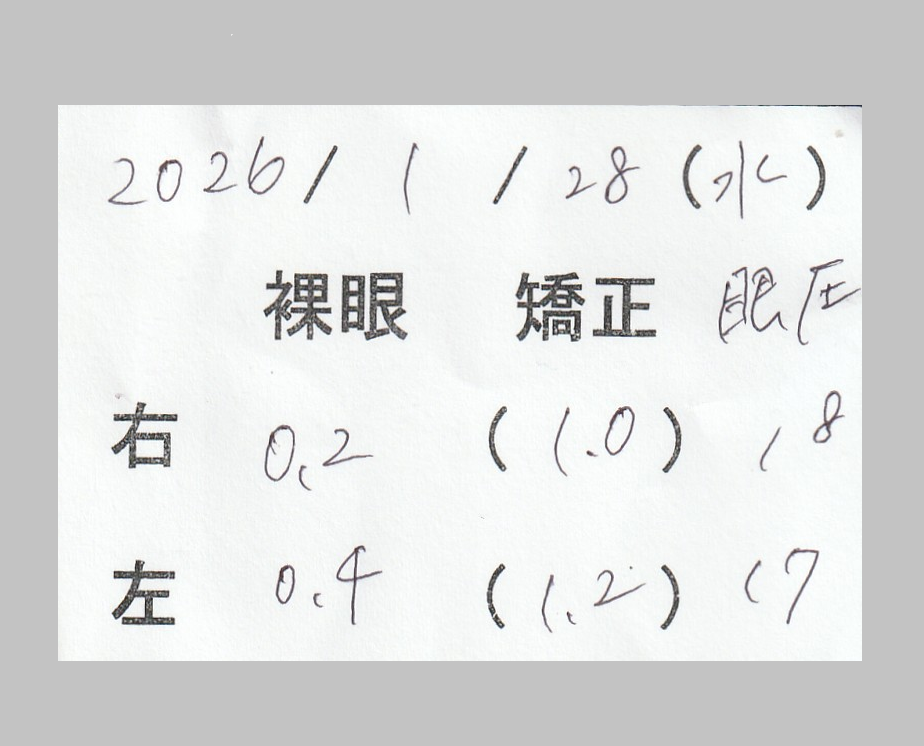 2026/1/28(水)
裸眼 矯正 眼圧
右 0.2 (1.0) 18
左 0.4 (1.2) 17